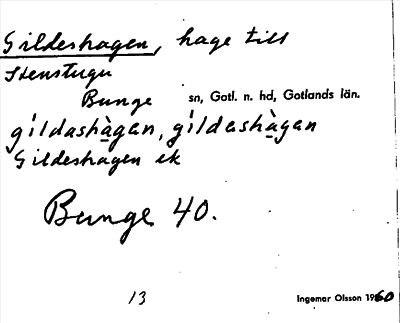 Gildeshagen, hage till
Stenstugu
Bunge sn, Gotl. n. hd, Gotlands län.
gíldashàgan, gíldeshàgan
Gildeshagen ek
Bunge 40.
13 Ingemar Olsson 1960